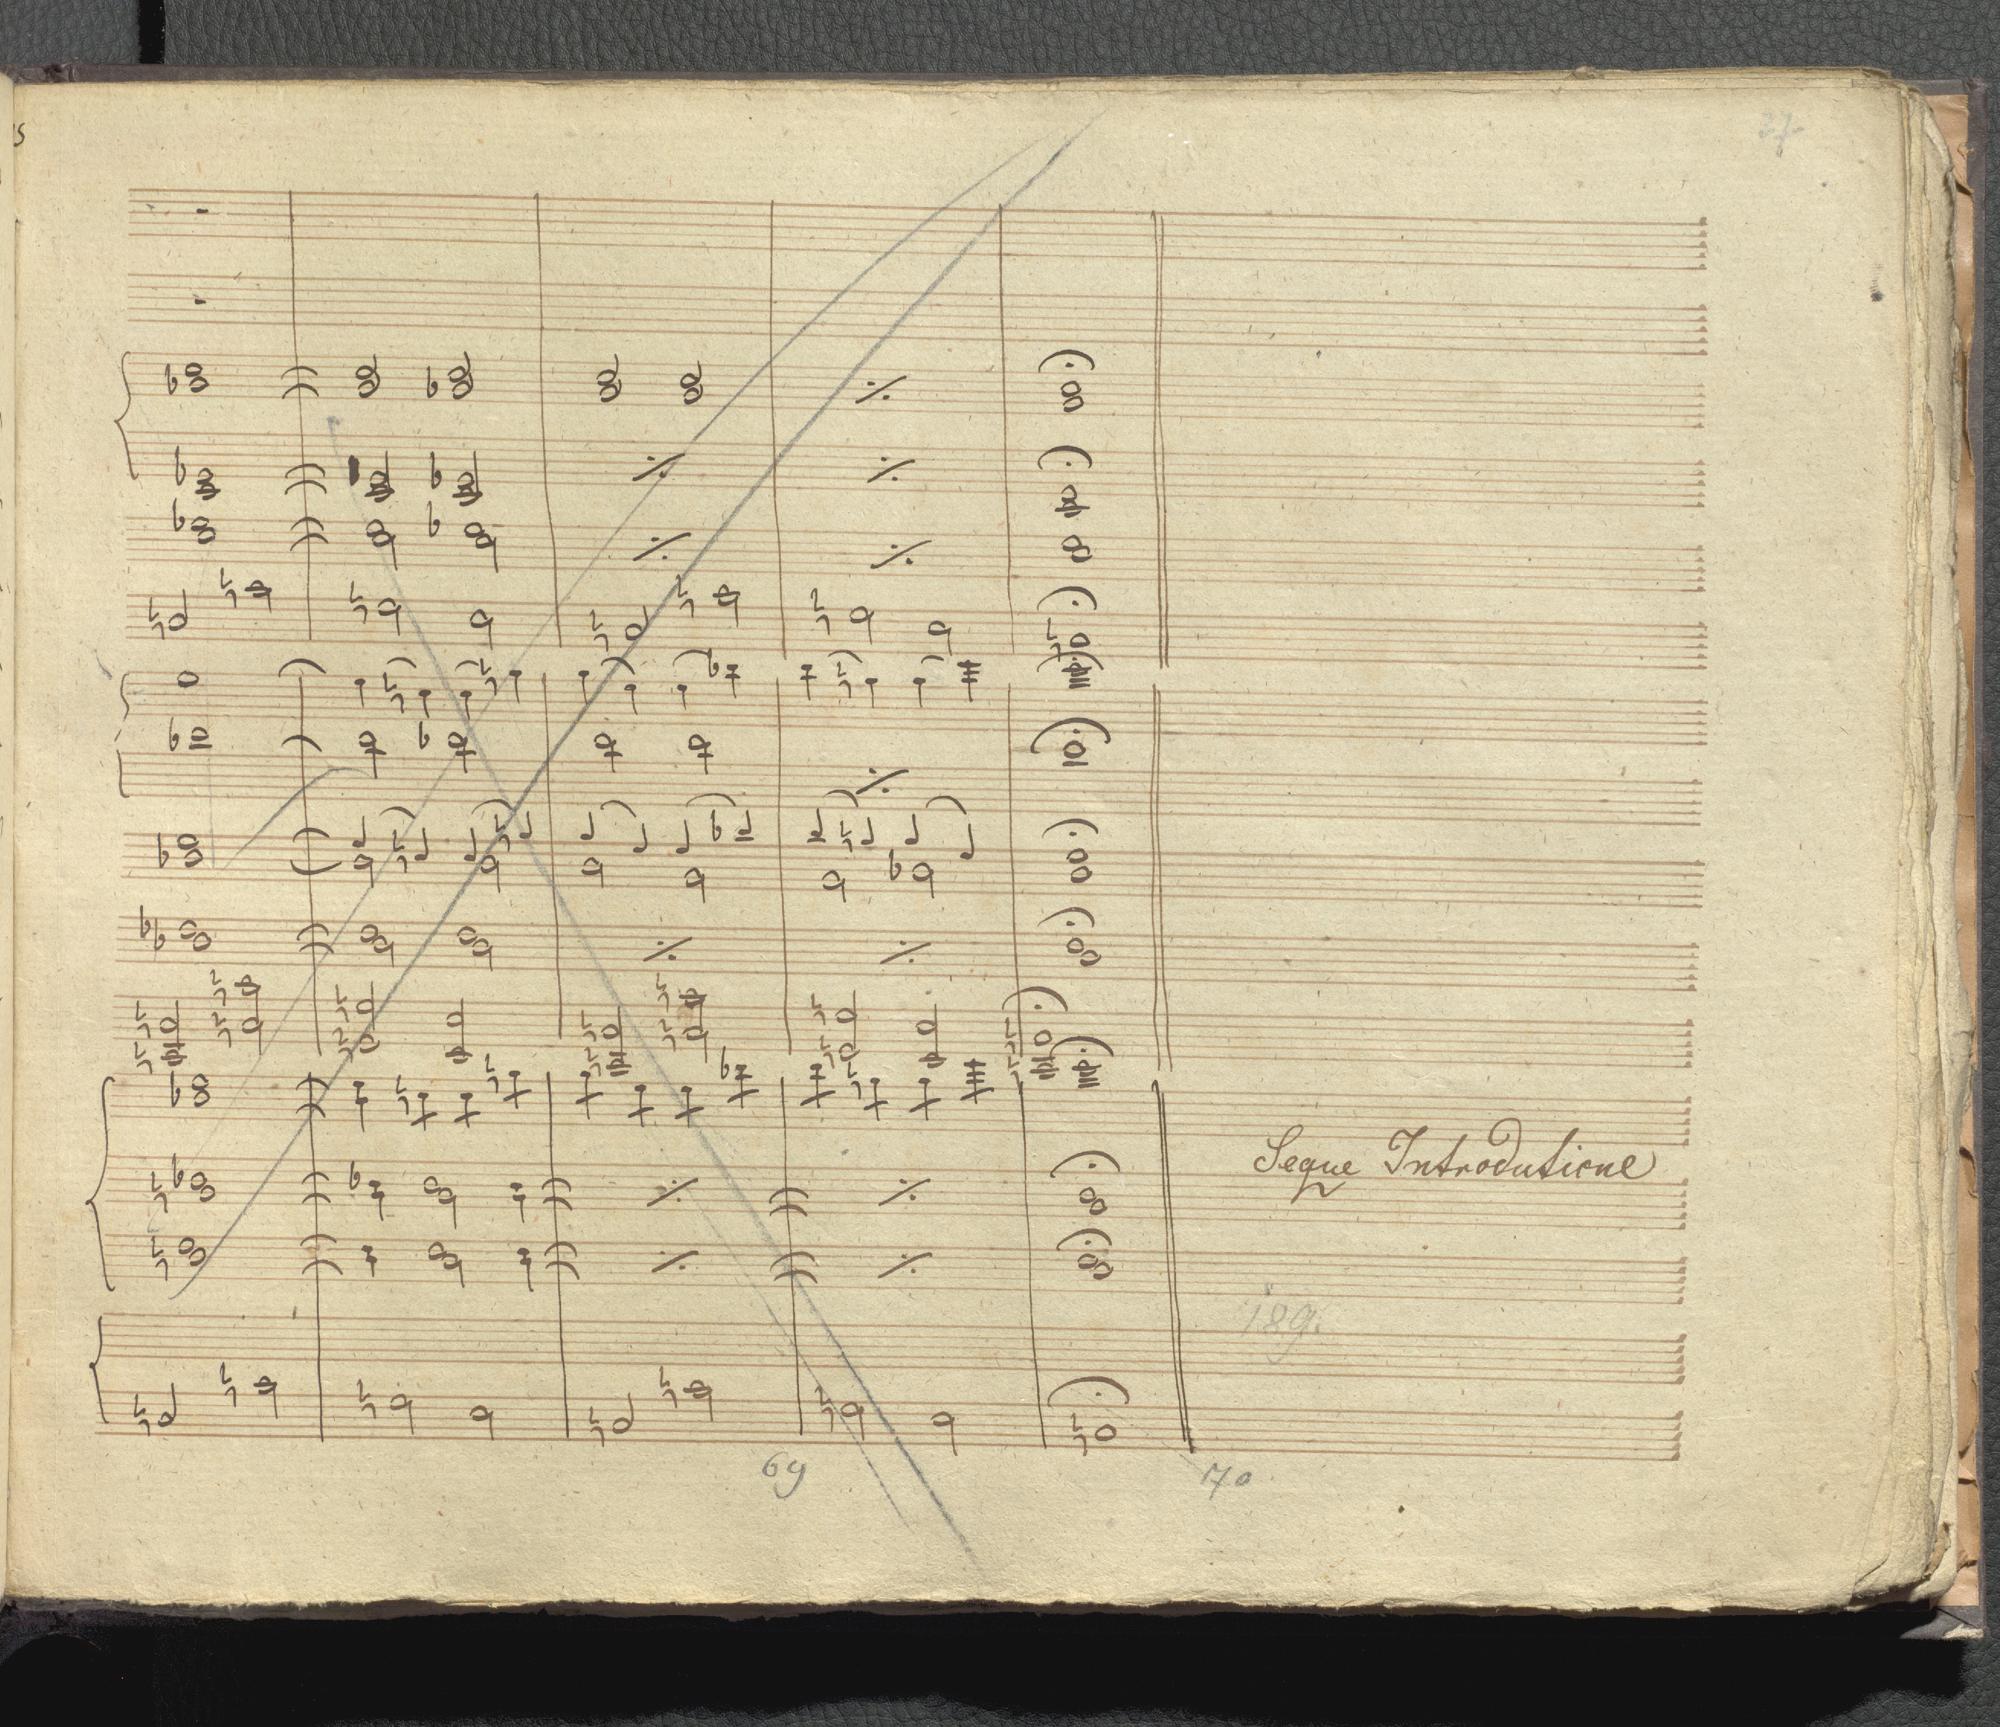 37
Segue Introdutione
189.
69
70